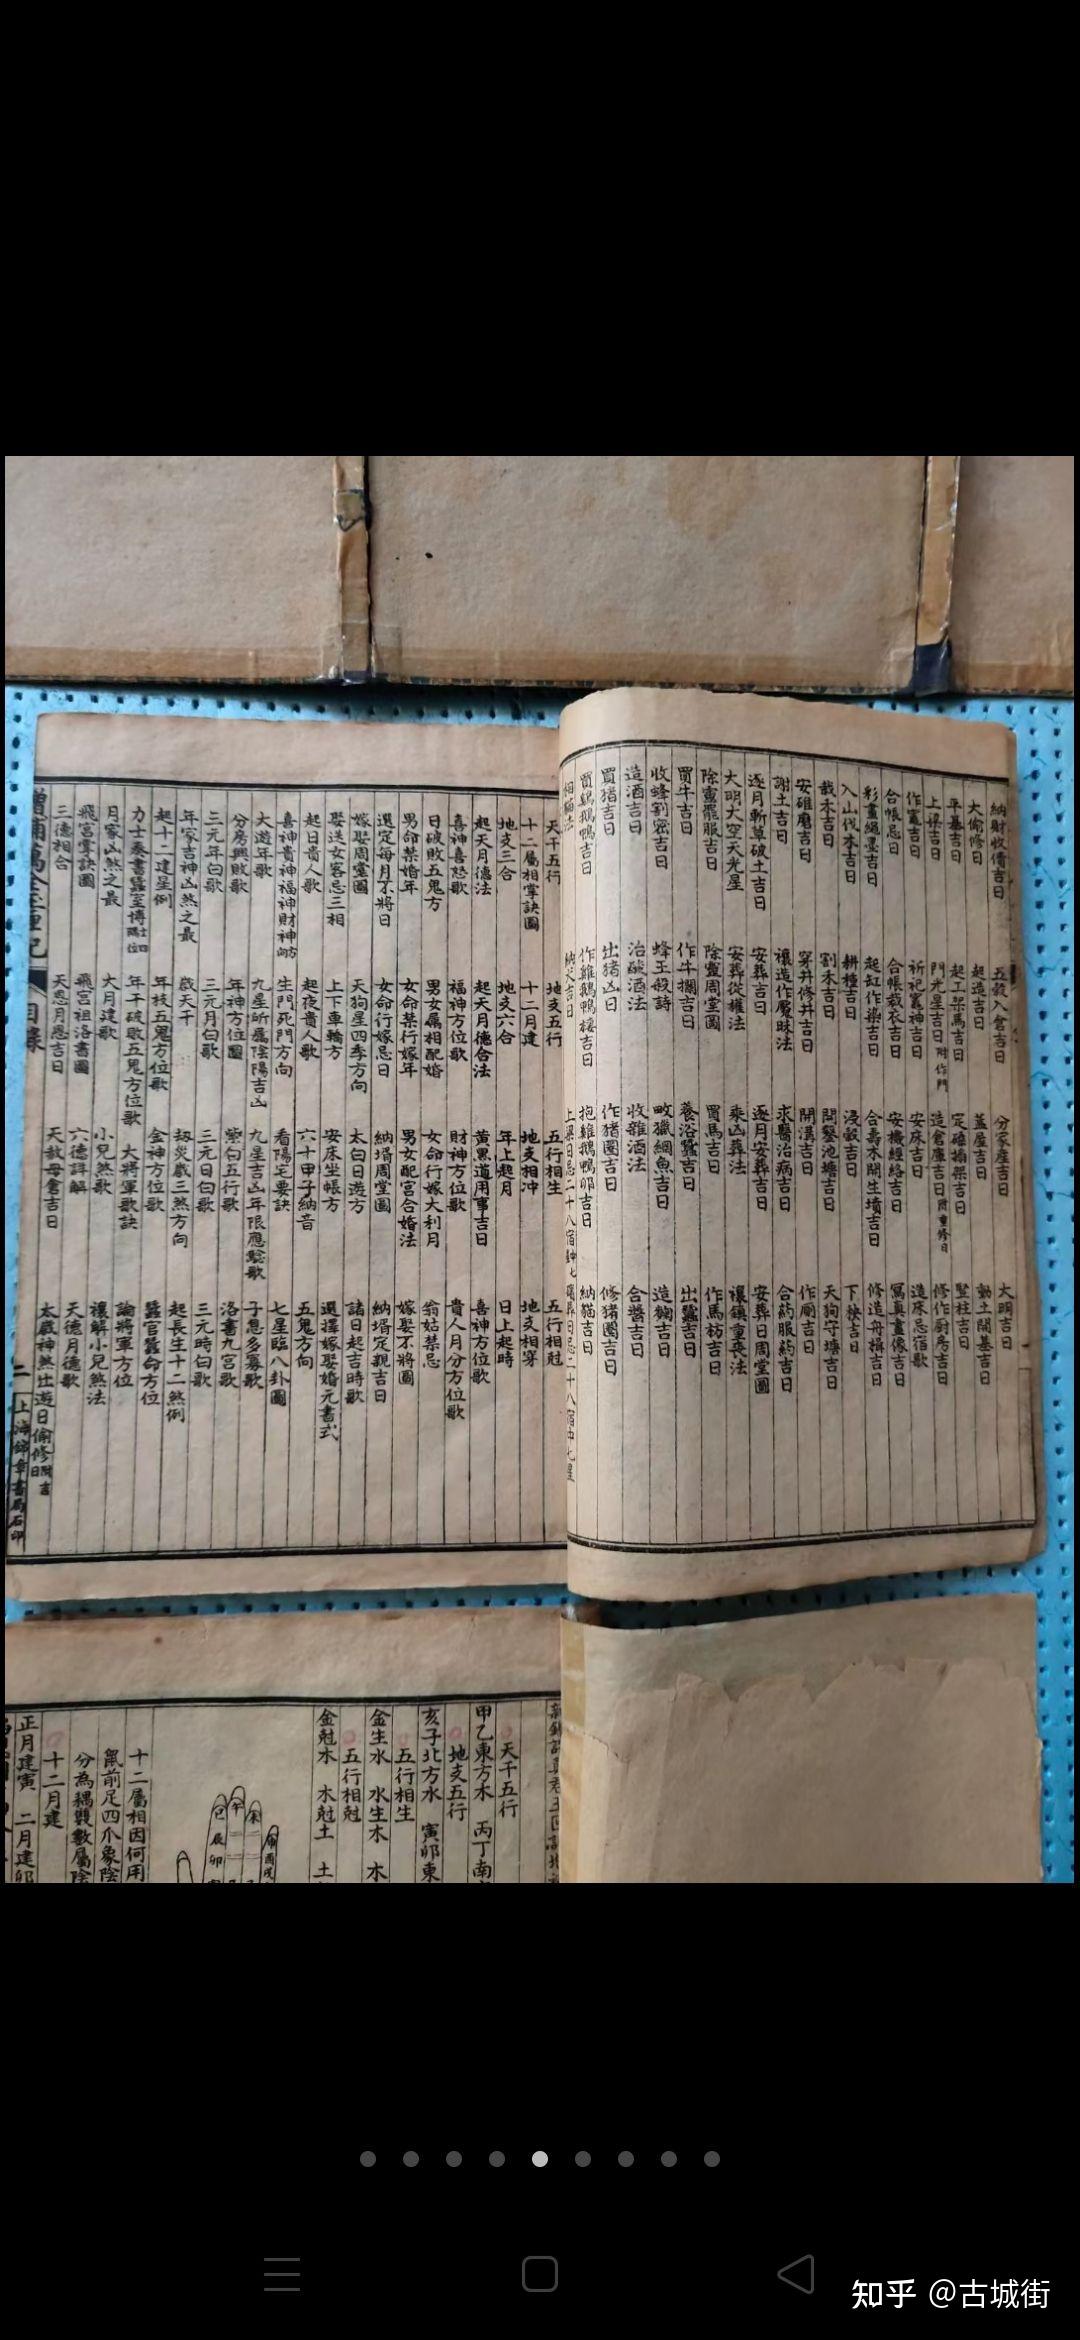 納財收債吉日 五穀入倉吉日 分家產吉日 大明吉日
大偷修日 起造吉日 蓋屋吉日 動土開基吉日
平基吉日 起工架馬吉日 定磉搧架吉日 豎柱吉日
上梁吉日 門光星吉日附作門 造倉庫吉日附重修日 修作厨房吉日
作竈吉日 祈祀竈神吉日 安床吉日 造床忌宿歌
合帳忌日 合帳裁衣吉日 安機經絡吉日 冩真畫像吉日
彩畫繩墨吉日 起缸作染吉日 合壽木開生墳吉日 修造舟楫吉日
入山伐木吉日 耕種吉日 浸穀吉日 下秧吉日
栽禾吉日 割禾吉日 開鑿池塘吉日 天狗守塘吉日
安碓磨吉日 穿井修井吉日 開溝吉日 作厠吉日
謝土吉日 禳造作魘昧法 求醫治病吉日 合葯服葯吉日
逐月斬草破土吉日 安葬吉日 逐月安葬吉日 安葬日周堂圖
大明大空天光星 安葬從權法 乘凶葬法 禳鎮重喪法
除靈罷服吉日 除靈周堂圖 買馬吉日 作馬枋吉日
買牛吉日 作牛攔吉日 養浴蠶吉日 出蠶吉日
收蜂割密吉日 蜂王殺詩 畋獵網魚吉日 造麯吉日
造酒吉日 治酸酒法 收雜酒法 合醬吉日
買猪吉日 出猪凶日 作猪圈吉日 修猪圈吉日
買鷄鵝鴨吉日 作雞鵝鴨棲吉日 抱雞鵝鴨卵吉日 納猫吉日
相貓法 納犬吉日
天干五行 地支五行 五行相生 五行相尅
十二屬相掌訣圖 十二月建 地支相冲 地支相穿
地支三合 地支六合 年上起月 日上起時
起天月德法 起天月德合法 黄黑道用事吉日 喜神方位歌
喜神喜怒歌 福神方位歌 財神方位歌 貴人月分方位歌
日破敗五鬼方 男女屬相配婚 女命行嫁大利月 翁姑禁忌
男命禁婚年 女命禁行嫁年 男女配宮合婚法 嫁娶不將圖
選定每月不將日 女命行嫁忌日 納壻周堂圖 納壻定親吉日
嫁娶周堂圖 天狗星四季方向 太白日遊方 諸日起吉時歌
娶送女客忌三相 上下車輪方 安床坐帳方 選擇嫁娶婚元書式
起日貴人歌 起夜貴人歌 六十甲子納音 五鬼方向
喜神貴神福神財神方向 生門死門方向 看陽宅要訣 七星臨八卦圖
大遊年歌 九星所屬陰陽吉凶 九星吉凶年限應驗歌 子息多寡歌
分房興敗歌 年神方位圖 紫白五行歌 洛書九宮歌
三元年白歌 三元月白歌 三元日白歌 三元時白歌
年家吉神凶煞之最 歲天干 刼災歲三煞方向 起長生十二煞例
起十二建星例 年枝五鬼方位歌 金神方位歌 蠶官蠶命方位
力士奏書蠶室博士四隅位 年干破敗五鬼方位歌 大將軍歌訣 論將軍方位
月家凶煞之最 大月建歌 小兒煞歌 禳解小兒煞法
飛宮掌訣圖 飛宮祖洛書圖 六德詳解 天德月德歌
三德相合 天恩月恩吉日 天赦母倉吉日 太歲神煞出遊日偷修日附吉
增補萬全玉匣記 目錄 二 上海錦章書局石印
天干五行
甲乙東方木 丙丁南
地支五行
亥子北方水 寅卯東
五行相生
金生水 水生木 木
五行相尅
金尅木 木尅土 土
巳 午 未
辰 卯 酉
十二屬相因何用
鼠前足四爪象陰
分為耦雙數屬陰
十二月建
正月建寅 二月建卯
知乎 @古城街